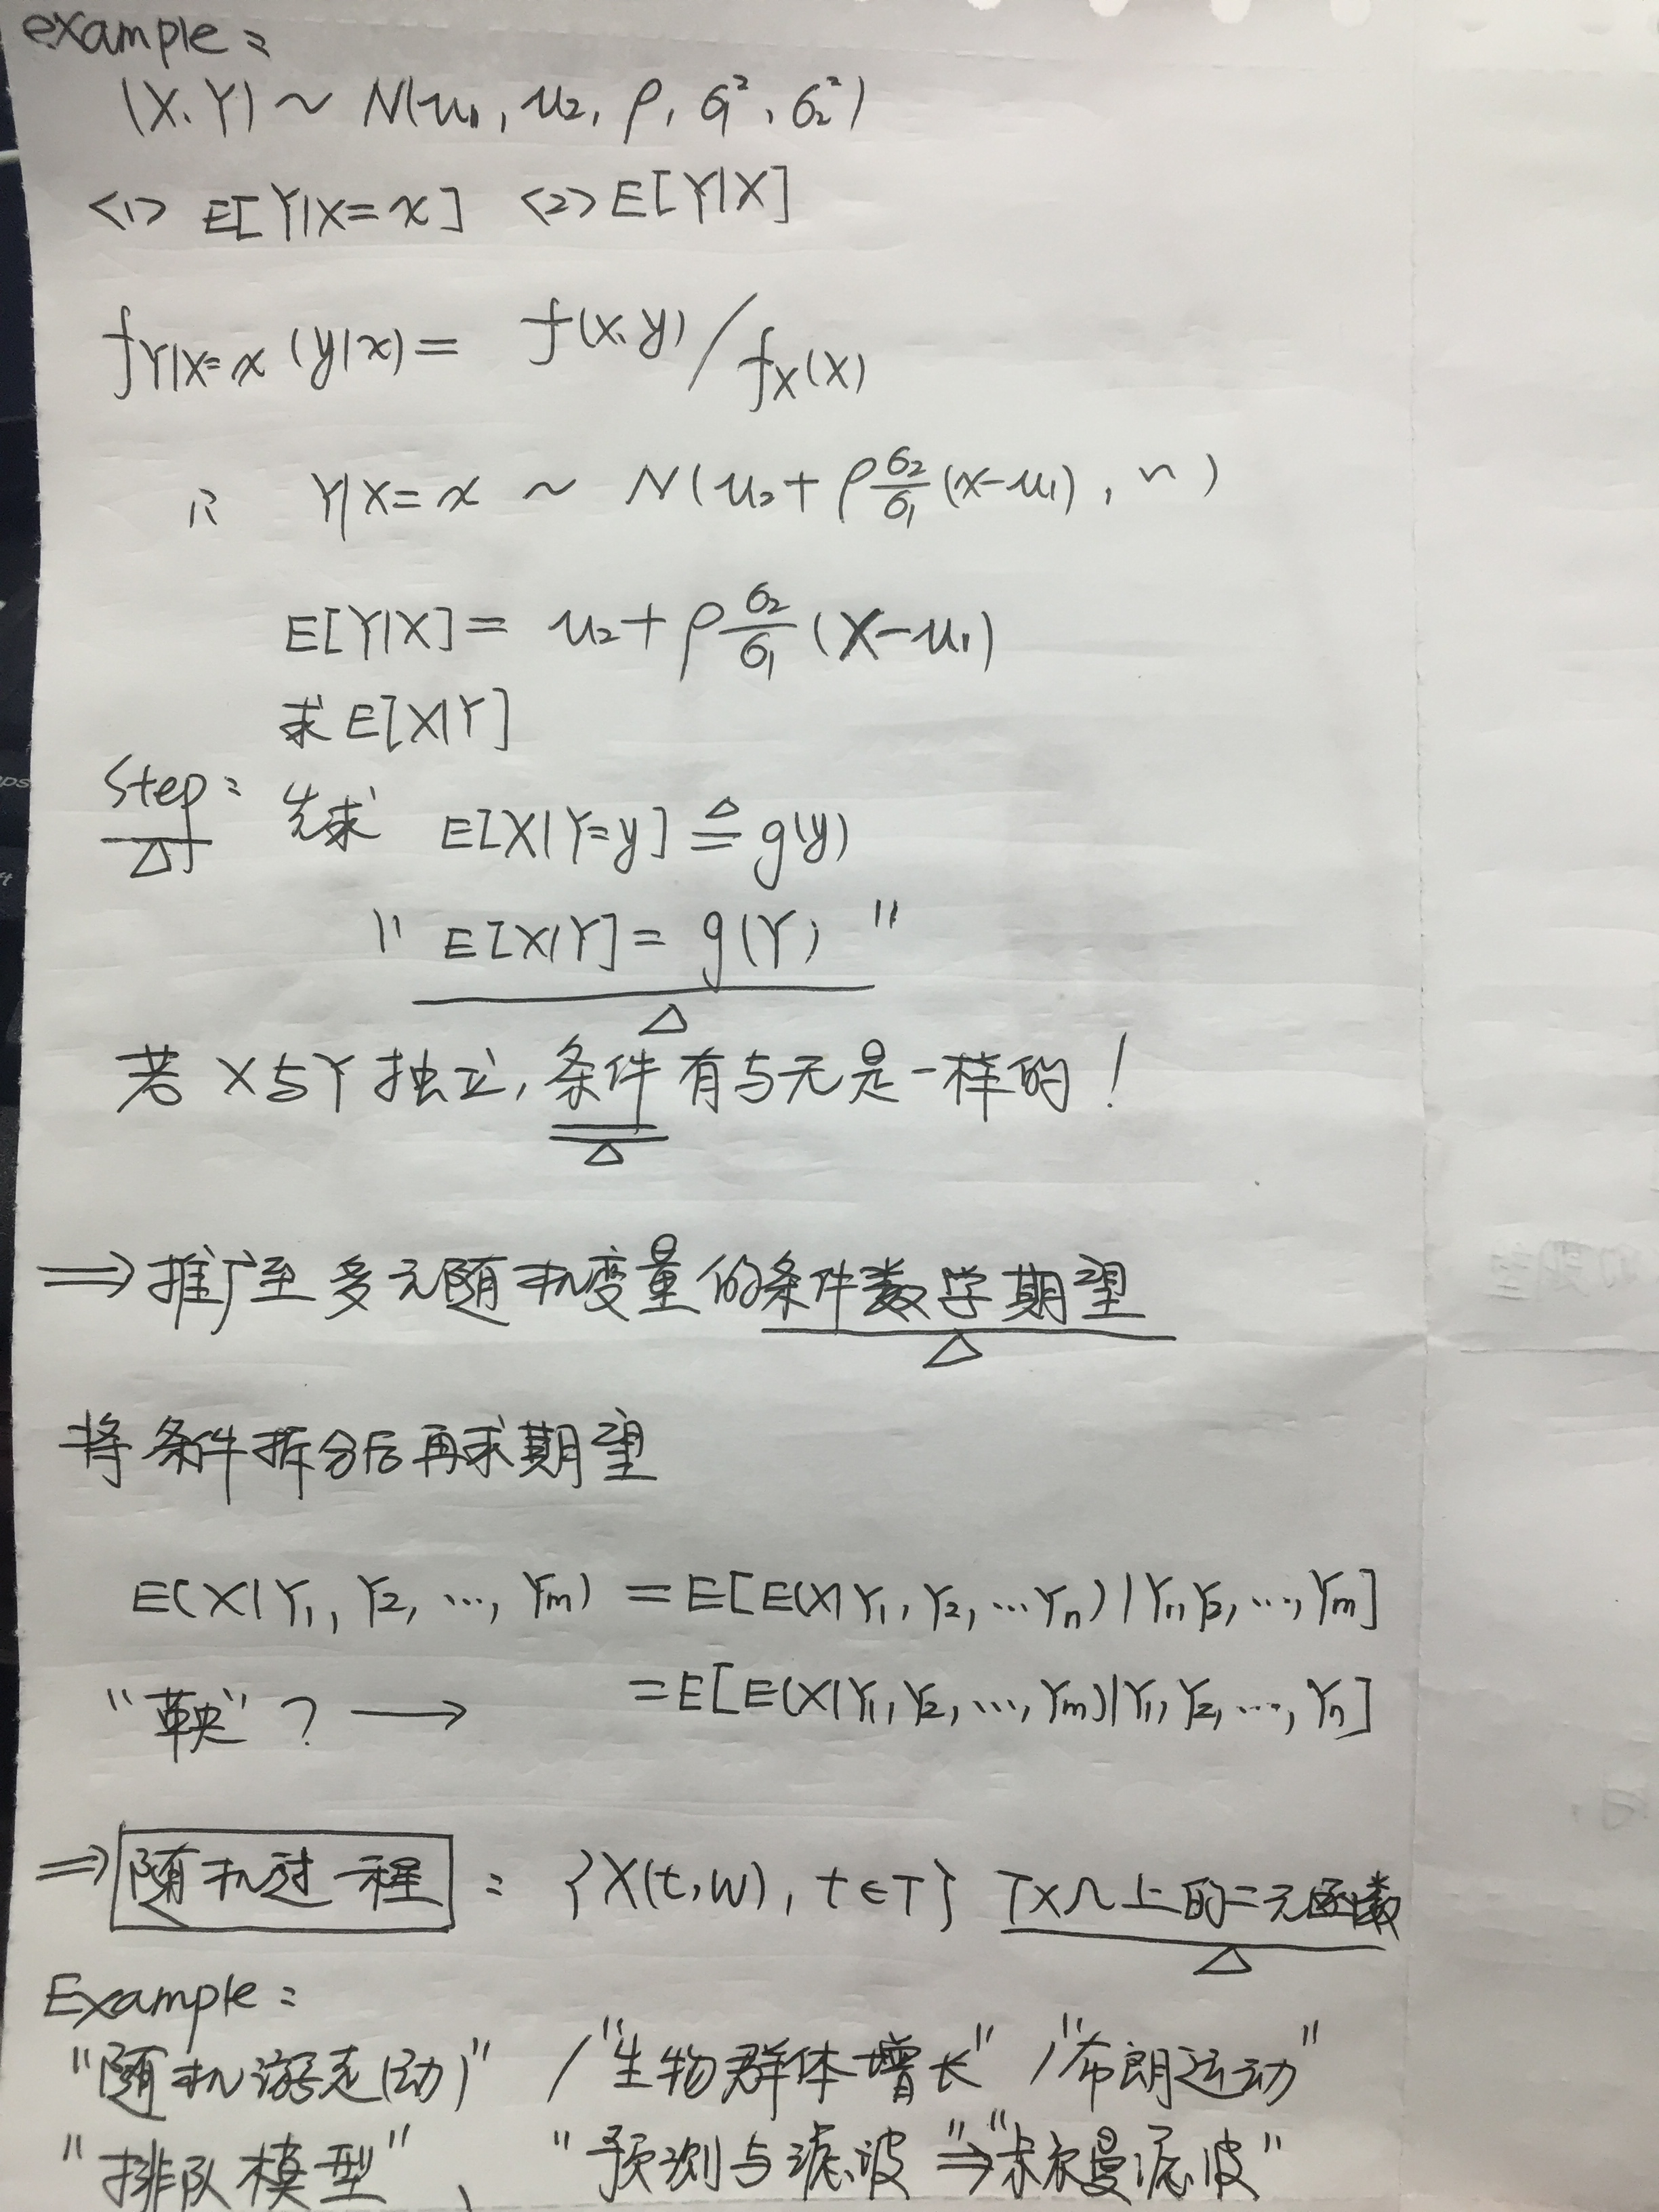 example:
(X, Y) ~ N(u₁, u₂, ρ, σ₁², σ₂²)
<1> E[Y|X=x] <2> E[Y|X]
f_{Y|X=x}(y|x) = f(x,y) / f_X(x)
Y|X=x ~ N(u₂+ρ\frac{σ₂}{σ₁}(x-u₁), ~)
E[Y|X] = u₂+ρ\frac{σ₂}{σ₁}(X-u₁)
求E[X|Y]
Step: 先求 E[X|Y=y] ≜ g(y)
"E[X|Y] = g(Y)"
若X与Y独立,条件有与无是一样的!
⇒推广至多元随机变量的条件数学期望
将条件拆分后再求期望
E(X|Y₁, Y₂, ..., Yₘ) = E[E(X|Y₁, Y₂, ...Yₙ)|Y₁,Y₂, ..., Yₘ]
"鞅"? → =E[E(X|Y₁, Y₂, ..., Yₘ)|Y₁, Y₂, ..., Yₙ]
⇒随机过程: {X(t,w), t∈T} T×Ω上的二元函数
Example:
"随机游走(动)" /"生物群体增长" /"布朗运动"
"排队模型"、 "预测与滤波"⇒"卡尔曼滤波"